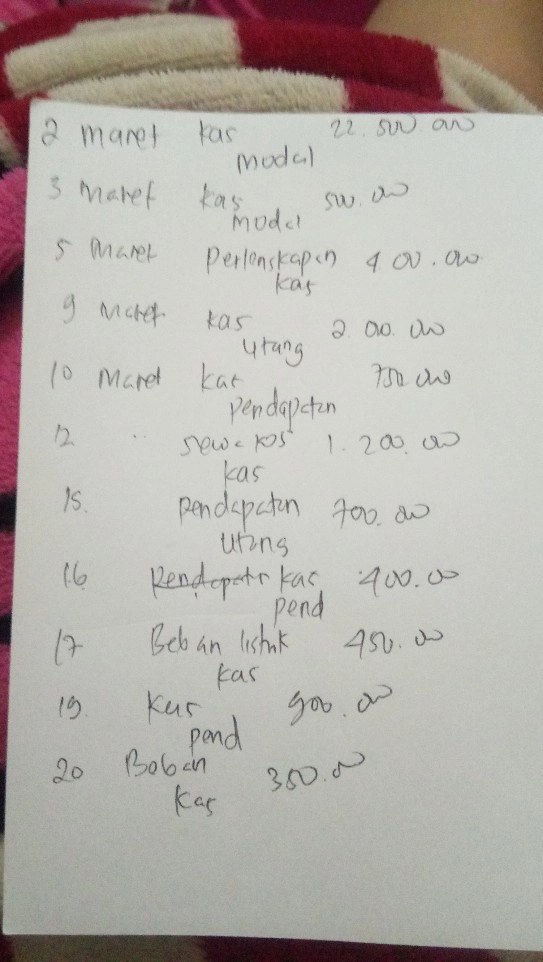 2 Maret kas 22.500.000
Modal
3 Maret kas 500.00
Modal
5 Maret Perlengkapan 400.000
kas
9 Maret kas 2.00.000
Utang
10 Maret kas 750.000
Pendapatan
12 " sewa kos 1.200.00
kas
15. Pendapatan 700.00
Utang
16 Pendapatn kas 400.00
Pend
17 Beban listrik 450.00
kas
19. Kas 900.00
Pend
20 Beban 350.00
kas